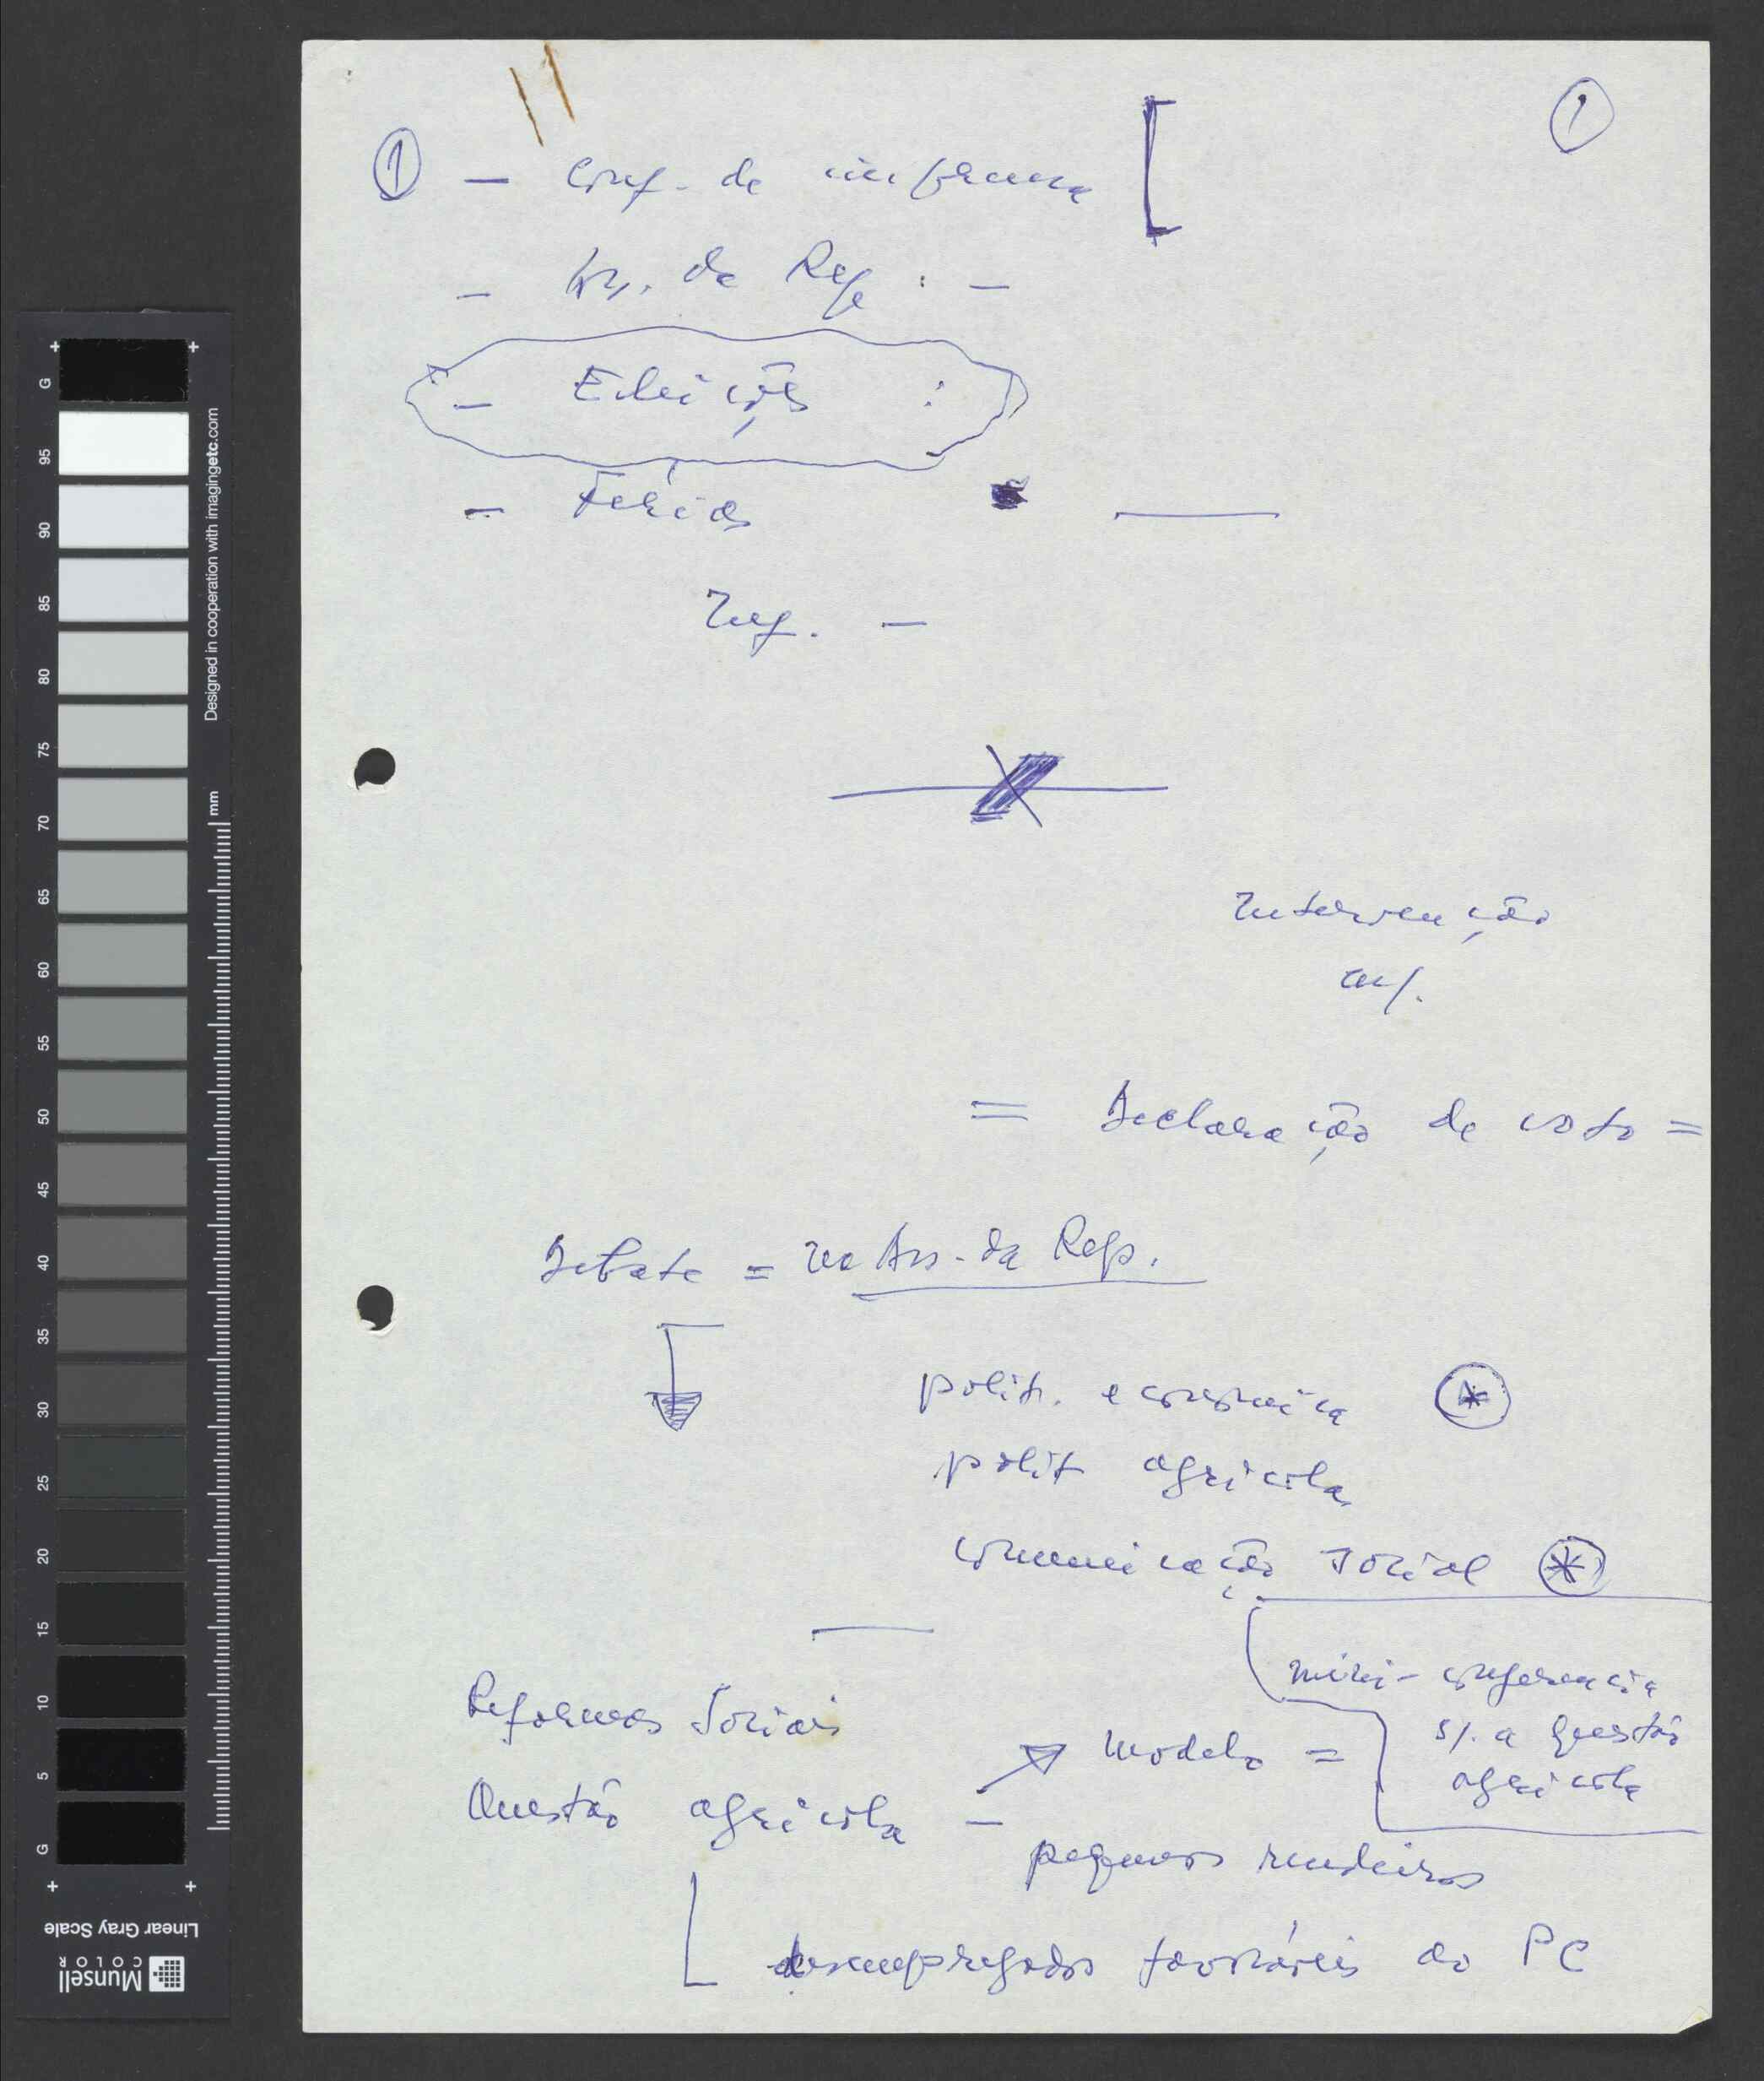 1
① — Conf. de imprensa [
— Ass. da Rep : —
— Eleições :
— Férias
Inf. —
Intervenção
= Declaração de voto =
Debate = na Ass. da Rep.
polit. económica *
polit agrícola
comunicação social *
mini-conferencia
s/. a questão
agrícola
Reformas Sociais
modelo =
Questão agrícola —
pequenos rendeiros
desempregados favoráveis ao PC
G
95
90
85
80
75
70
65
60
55
50
45
40
35
30
25
20
15
10
5
G
mm
Designed in cooperation with imagingetc.com
Linear Gray Scale
Munsell
COLOR